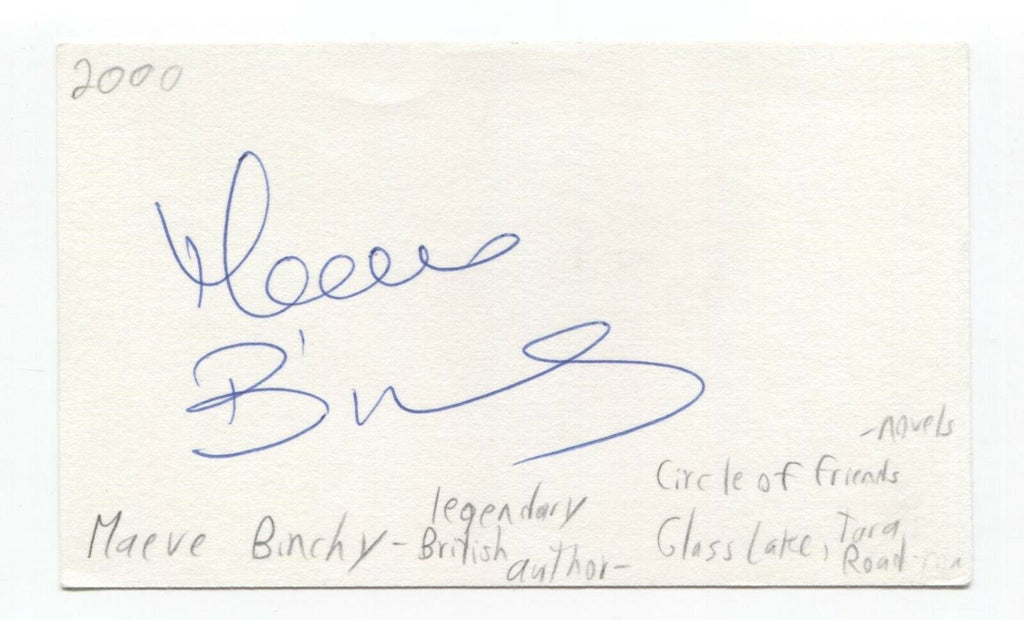 2000
Maeve
Binchy
- novels
Circle of friends
legendary
Maeve Binchy - British author -
Glass Lake, Tara Road